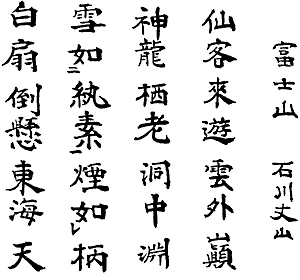 富士山 石川丈山
仙客來遊雲外巓
神龍栖老洞中淵
雪如二紈素一煙如レ柄
白扇倒懸東海天